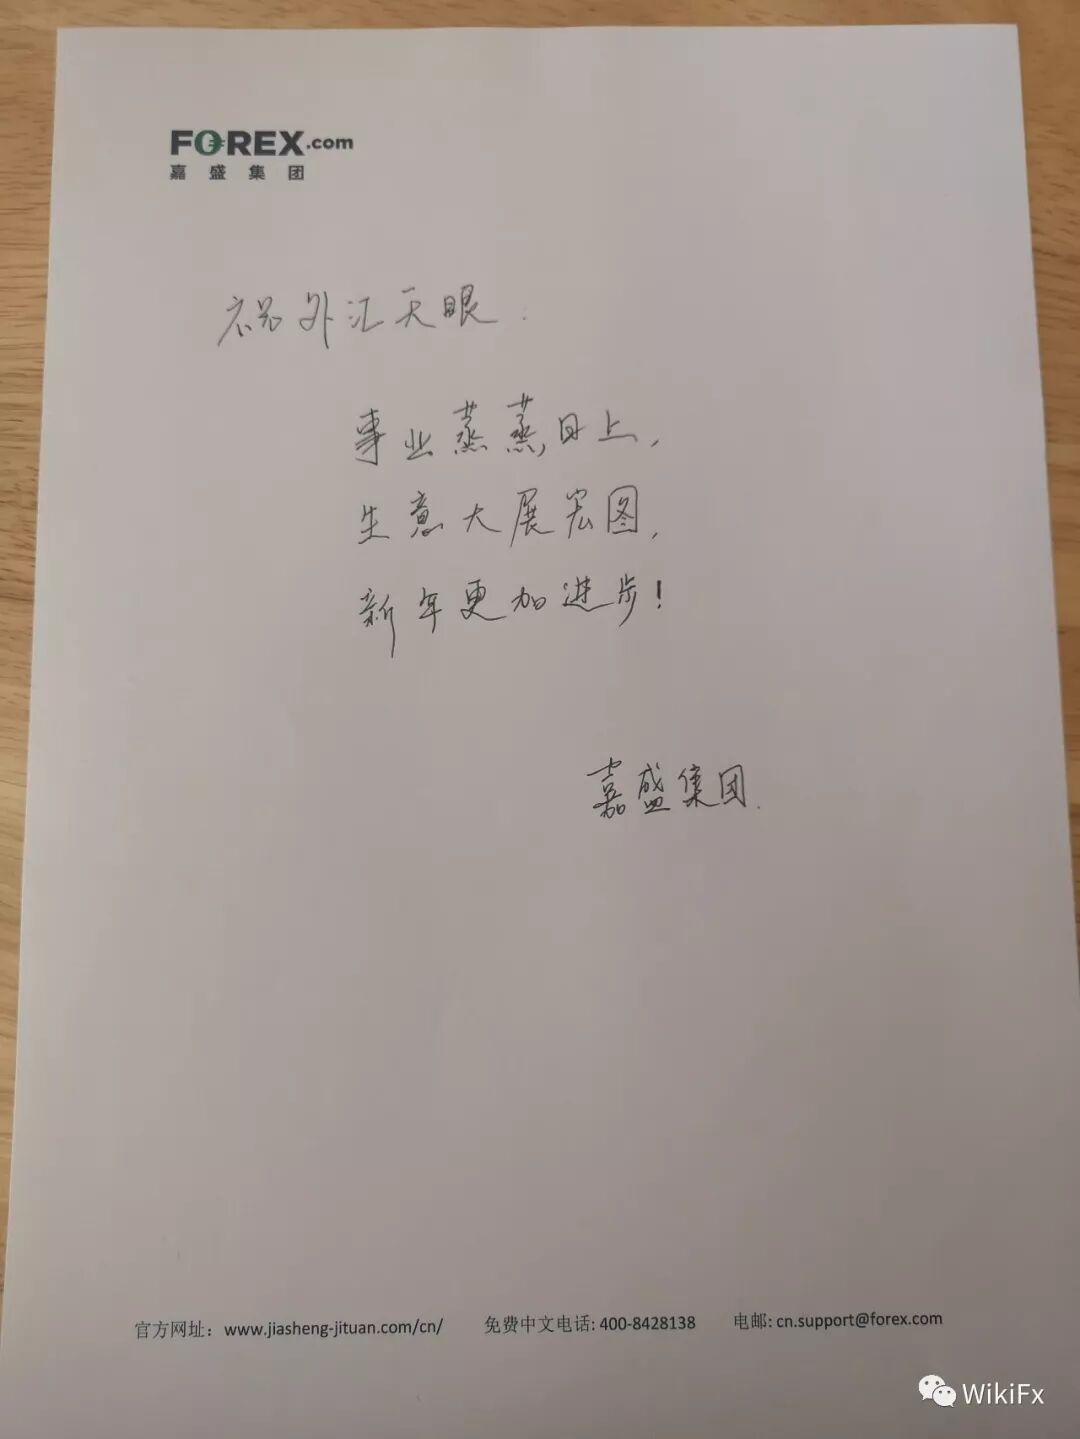 FOREX.com
嘉盛集团
祝外汇天眼:
事业蒸蒸日上,
生意大展宏图,
新年更加进步!
嘉盛集团.
官方网址：www.jiasheng-jituan.com/cn/ 免费中文电话: 400-8428138 电邮: cn.support@forex.com
WikiFx